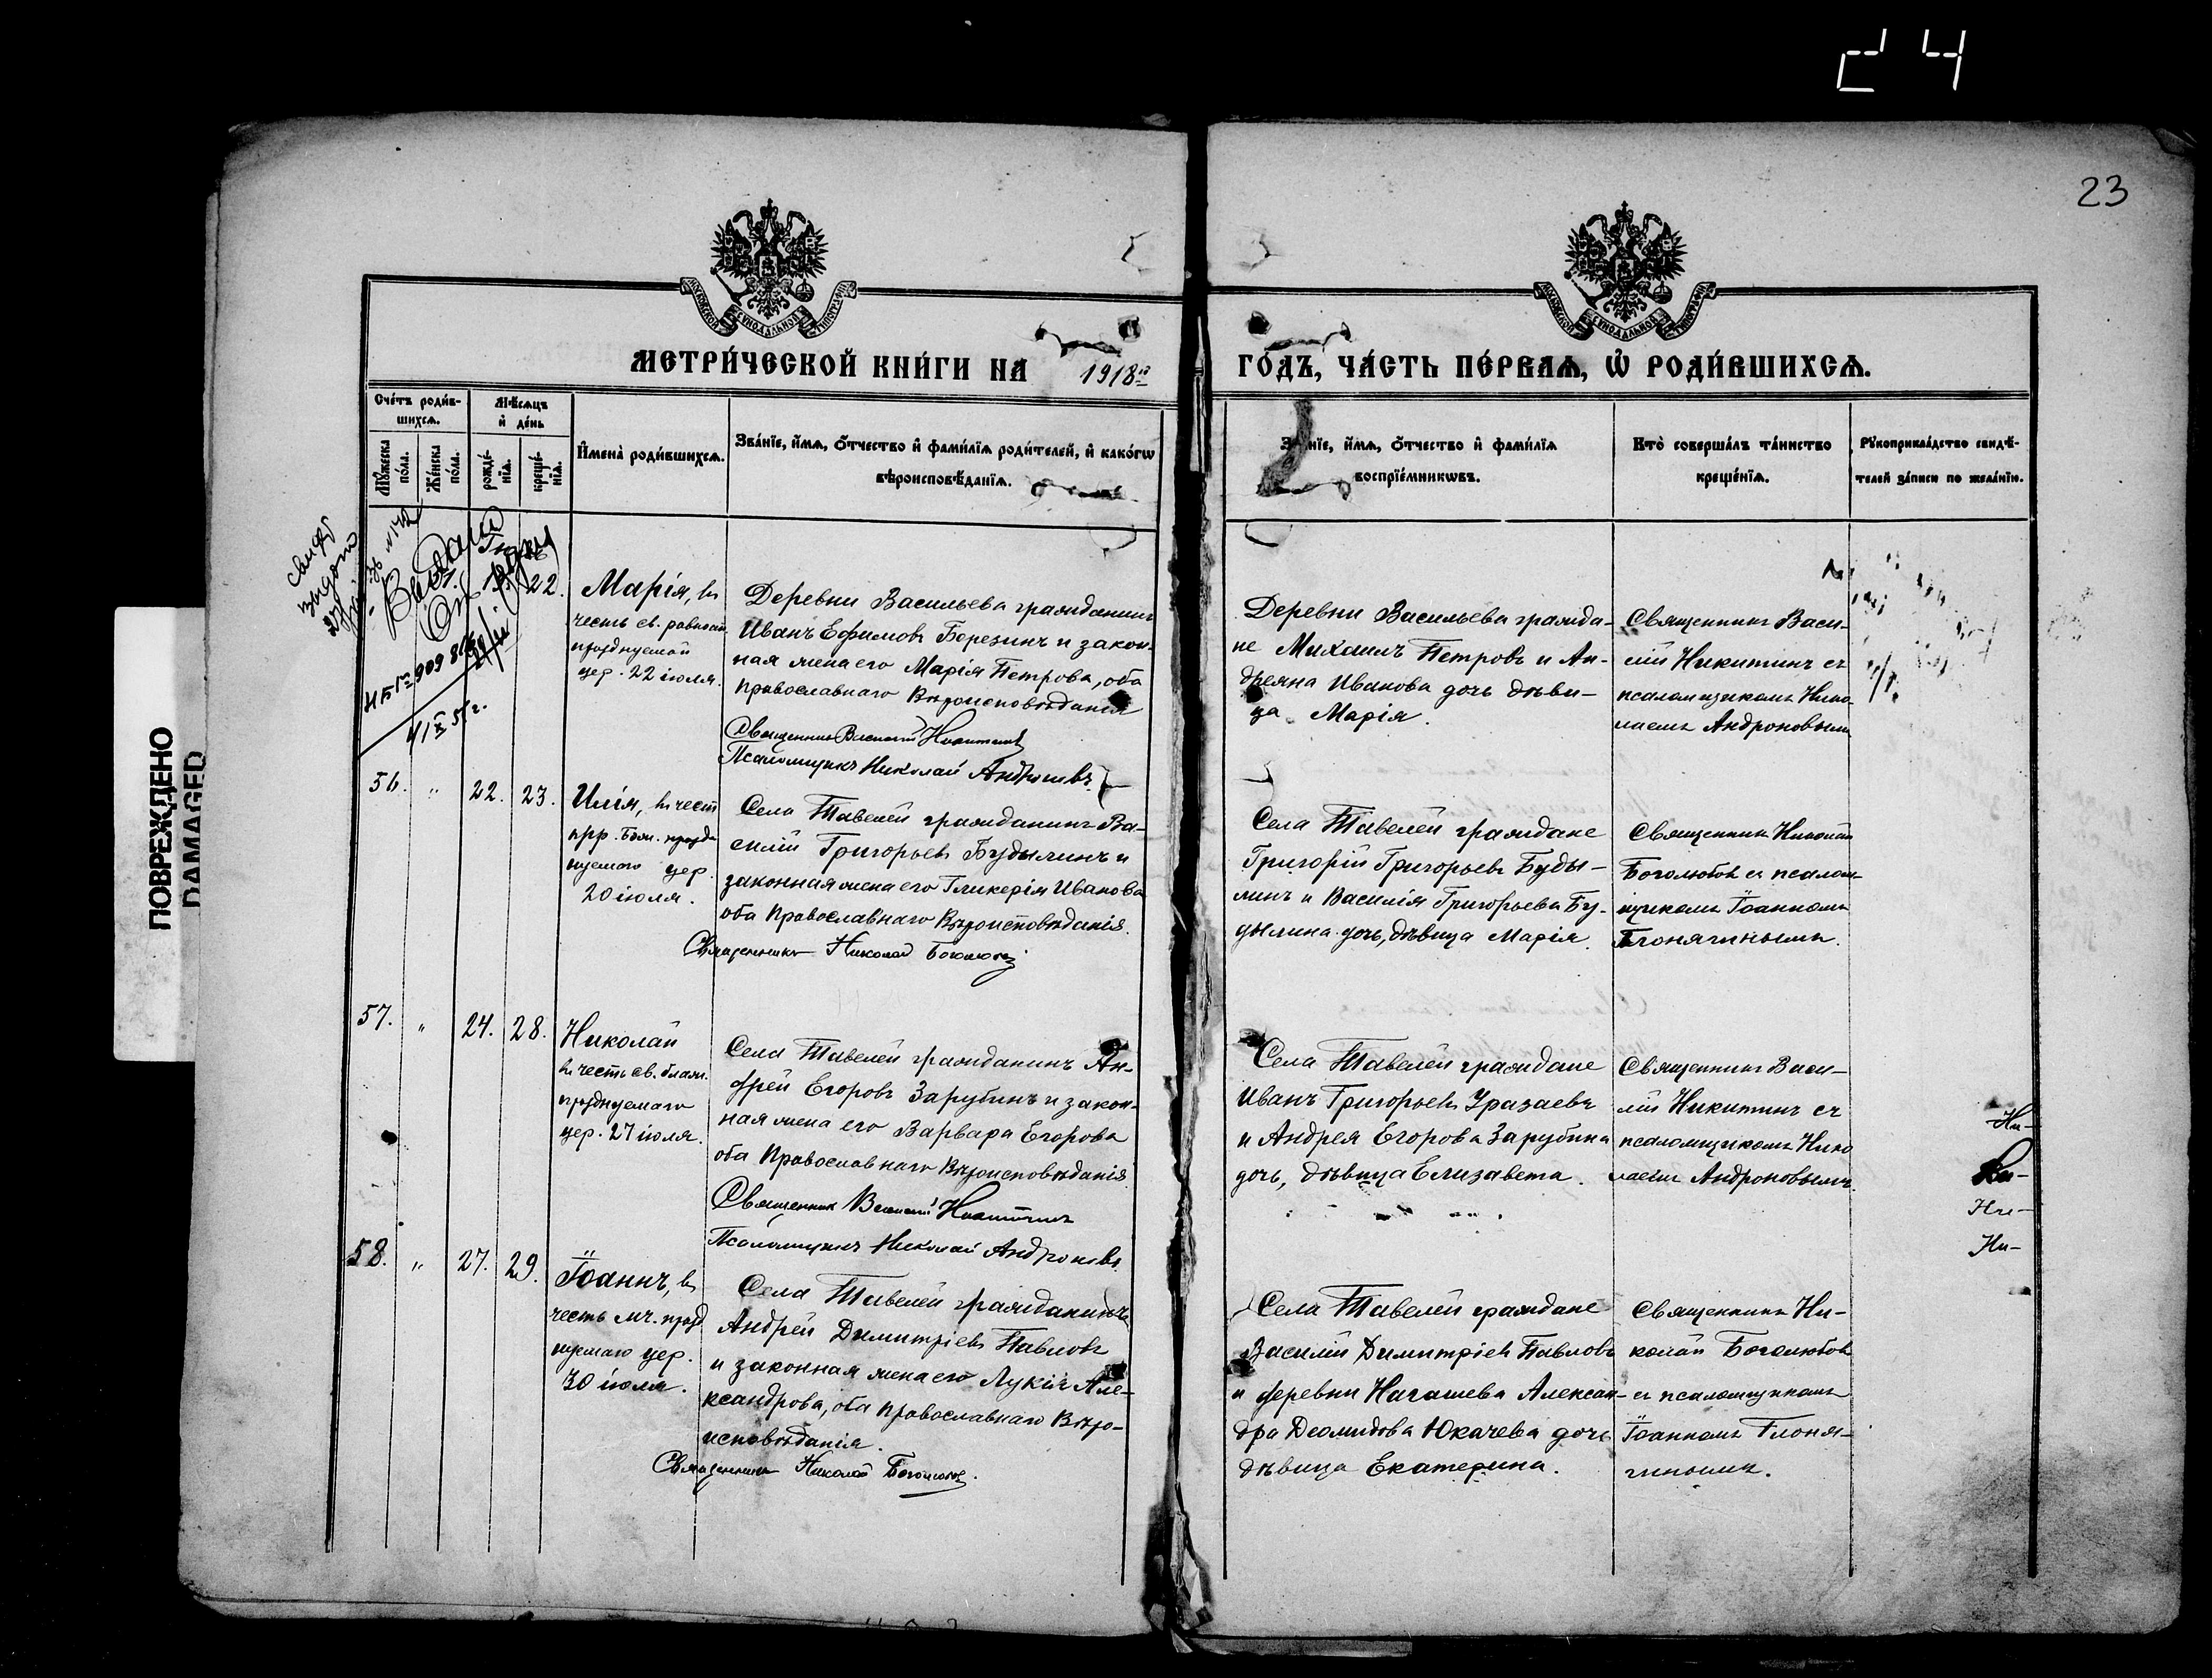 24
23
МОСКОВСКОЙ СѴНОДАЛЬНОЙ ТИПОГРАФІИ
МОСКОВСКОЙ СѴНОДАЛЬНОЙ ТИПОГРАФІИ
МЕТРИ́ЧЕСКОЙ КНИ́ГИ НА 1918й ГО́ДЪ, ЧА́СТЬ ПЕ́РВАѦ, Ѡ҆ РОДИ́ВШИХСѦ.
Сче́тъ роди́в-
шихсѧ.
Мѣ́сѧцъ
и҆ де́нь
Мꙋ́жеска
по́ла.
Же́нска
по́ла.
рожде́-
нїѧ.
креще́-
нїѧ.
И҆мена̀ роди́вшихсѧ.
Зва́нїе, и҆́мѧ, ѻ҆́тчество и҆ фами́лїѧ роди́телей, и҆ како́гѡ
вѣроисповѣ́данїѧ.
Зва́нїе, и҆́мѧ, ѻ҆́тчество и҆ фами́лїѧ
воспрїе́мникѡвъ.
Кто̀ соверша́лъ та́инство
креще́нїѧ.
Рꙋкоприкла́дство свидѣ́-
телей за́писи по жела́нїю.
22.
Марія, въ
честь св. равноап.
празднуемой
цер. 22 іюля.
Деревни Васильева гражданинъ
Иванъ Ефимовъ Березинъ и закон-
ная жена его Марія Петрова, оба
православнаго Вѣроисповѣданія
Священникъ Василій Никитинъ
Псаломщикъ Николай Андроновъ
Деревни Васильева гражда-
не Михаилъ Петровъ и Ан-
дреяна Иванова дочь дѣви-
ца Марія.
Священникъ Васи-
лій Никитинъ съ
псаломщикомъ Нико-
лаемъ Андроновымъ
56. " 22. 23.
Илія, въ честь
прр. Бож. праздн
нуемого цер.
20 іюля.
Села Тавелей гражданинъ Ва-
силій Григорьевъ Будылинъ и
законная жена его Гликерія Иванова
оба Православнаго Вѣроисповѣданія.
Священникъ Николай Боголюбов
Села Тавелей граждане
Григорій Григорьевъ Буды-
линъ и Василія Григорьева Бу-
дылина дочь, дѣвица Марія.
Священникъ Николай
Боголюбовъ съ псалом-
щикомъ Іоанномъ
57. " 24. 28.
Николай
въ честь св. блаж.
празднуемаго
цер. 27 іюля.
Села Тавелей гражданинъ Ан-
дрей Егоровъ Зарубинъ и закон-
ная жена его Варвара Егорова
оба Православнаго Вѣроисповѣданія
Священник Василій Никитинъ
Псаломщикъ Николай Андроновъ
Села Тавелей граждане
Иванъ Григорьевъ Уразаевъ
и Андрея Егорова Зарубина
дочь, дѣвица Елизавета.
Священникъ Васи-
лій Никитинъ съ
псаломщикомъ Нико
лаемъ Андроновымъ.
58. " 27. 29.
Іоаннъ, въ
честь мч. празд
нуемаго цер.
30 іюля.
Села Тавелей гражданинъ
Андрей Димитріевъ Павловъ
и законная жена его Лукія Але-
ксандрова, оба православнаго Вѣро-
исповѣданія.
Священникъ Николай Боголюбов.
Села Тавелей граждане
Василій Димитріевъ Павловъ
и деревни Нагашева Алексан-
дра Деомидова Юкачева дочь
дѣвица Екатерина.
Священникъ Ни-
колай Боголюбовъ
съ псаломщикомъ
Іоанномъ
Ни-
Ни-
ПОВРЕЖДЕНО
DAMAGED